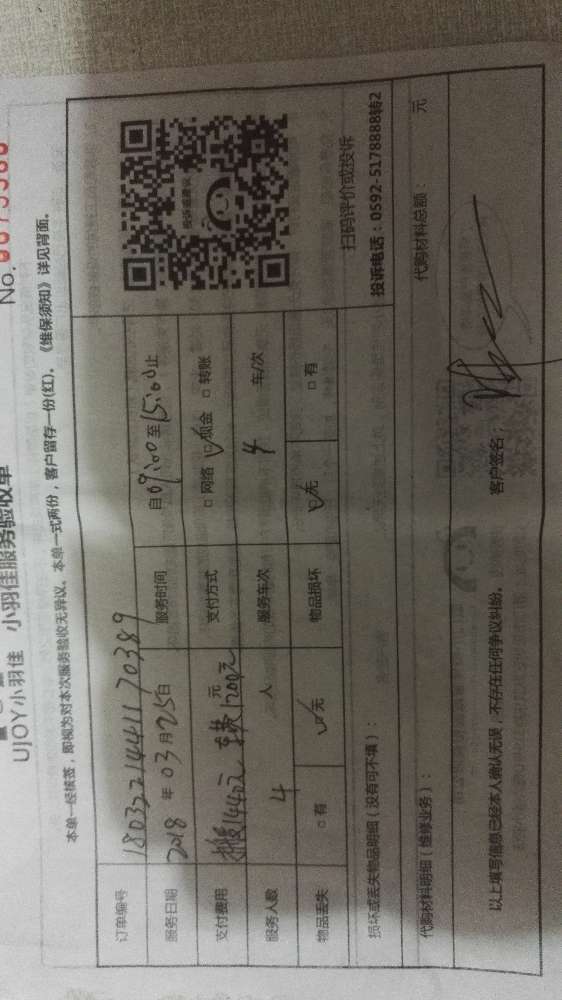 No.
UJOY小羽佳 小羽佳服务验收单
本单一经核签，即视为对本次服务验收无异议。本单一式两份，客户留存一份(红)。《维保须知》详见背面。
订单编号 18032214441170389
服务日期 2018 年 03 月 25 日 服务时间 自 09:00 至 15:00 止
支付费用 搬运1440元 车费1200元 元 支付方式 □ 网络 ☑ 现金 □ 转账
服务人数 4 人 服务车次 4 车/次
物品丢失 □ 有 ☑ 无 物品损坏 ☑ 无 □ 有
投诉或建议
扫码评价或投诉
投诉电话：0592-5178888转2
损坏或丢失物品明细（没有可不填）：
代购材料明细（维修业务）： 代购材料总额： 元
以上填写信息已经本人确认无误，不存在任何争议纠纷。 客户签名：